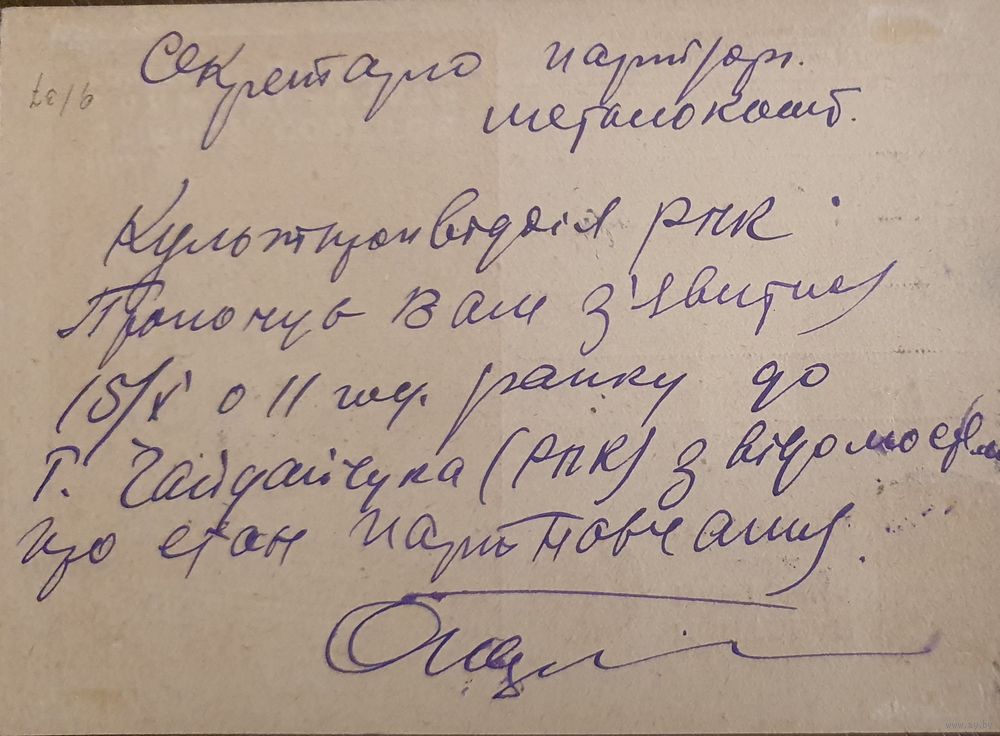 Секретарю партјорг.
металокомб.
Культпропвідділ РПК
Пропонує Вам з'явитися
15/X о 11 год. ранку до
т. Гайдайчука (РПК) з відомостями
про стан партнавчання.
9/37
www.ay.by